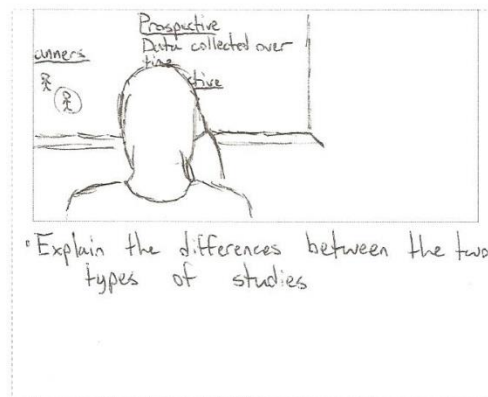 Prospective
Data collected over
time
anners
ctive
"Explain the differences between the two
types of studies